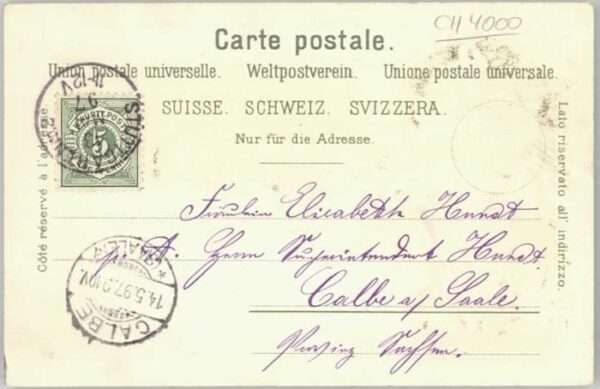 CH 4000
Carte postale.
Union postale universelle. Weltpostverein. Unione postale universale.
SUISSE. SCHWEIZ. SVIZZERA.
Nur für die Adresse.
Côté réservé à l'adresse.
Lato riservato all' indirizzo.
5
STUTTGART
97
11-12V
Fräulein Elisabeth Hundt
p. A. Herrn Superintendent Hundt.
Calbe a/ Saale.
Provinz Sachsen.
CALBE
14.5.97.9-10V.
* (SAALE) *